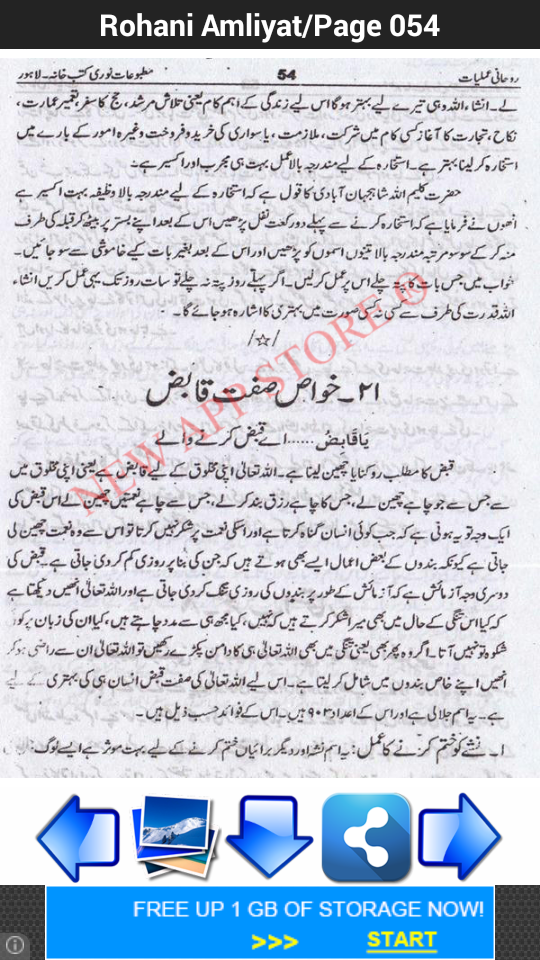 Rohani Amliyat/Page 054
روحانی عملیات 54 مطبوعات نوری کتب خانہ۔ لاہور
لے۔ انشاء اللہ وہی تیرے لیے بہتر ہوگا اس لیے زندگی کے اہم کام یعنی تلاش مرشد، حج کا سفر، تعمیر عمارت،
نکاح، تجارت کا آغاز کسی کام میں شرکت، ملازمت، یا سواری کی خرید و فروخت وغیرہ امور کے بارے میں
استخارہ کر لینا بہتر ہے۔ استخارہ کے لیے مندرجہ بالا عمل بہت ہی مجرب اور اکسیر ہے۔
حضرت کلیم اللہ شاہجہان آبادی کا قول ہے کہ استخارہ کے لیے مندرجہ بالا وظیفہ بہت اکسیر ہے
انھوں نے فرمایا ہے کہ استخارہ کرنے سے پہلے دو رکعت نفل پڑھیں اس کے بعد اپنے بستر پر بیٹھ کر قبلہ کی طرف
منہ کر کے سو سو مرتبہ مندرجہ بالا تینوں اسموں کو پڑھیں اور اس کے بعد بغیر بات کیے خاموشی سے سو جائیں۔
خواب میں جس بات کا پتہ چلے اس پر عمل کر لیں۔ اگر پہلے روز پتہ نہ چلے تو سات روز تک یہی عمل کریں انشاء
اللہ قدرت کی طرف سے کسی نہ کسی صورت میں بہتری کا اشارہ ہو جائے گا۔
/☆/
۲۱۔ خواص صفت قابض
یَا قَابِضُ ...... اے قبض کرنے والے
قبض کا مطلب روکنا یا چھین لینا ہے۔ اللہ تعالیٰ اپنی مخلوق کے لیے قابض ہے یعنی اپنی مخلوق میں
سے جس سے جو چاہے چھین لے، جس کا چاہے رزق بند کر لے، جس سے چاہے نعمتیں چھین لے اس قبض کی
ایک وجہ تو یہ ہوتی ہے کہ جب کوئی انسان گناہ کرتا ہے اور اسکی نعمت پر شکر نہیں کرتا تو اس سے وہ نعمت چھین لی
جاتی ہے کیونکہ بندوں کے بعض اعمال ایسے بھی ہوتے ہیں کہ جن کی بنا پر روزی کم کر دی جاتی ہے۔ قبض کی
دوسری وجہ آزمائش ہے کہ آزمائش کے طور پر بندوں کی روزی تنگ کر دی جاتی ہے اور اللہ تعالیٰ انھیں دیکھتا ہے
کہ کیا اس تنگی کے حال میں بھی میرا شکر کرتے ہیں کہ نہیں، کیا مجھ ہی سے مدد چاہتے ہیں، کیا ان کی زبان پر کوئی
شکوہ تو نہیں آتا۔ اگر وہ پھر بھی یعنی تنگی میں بھی اللہ تعالیٰ ہی کا دامن پکڑے رکھیں تو اللہ تعالیٰ ان سے راضی ہو کر
انھیں اپنے خاص بندوں میں شامل کر لیتا ہے۔ اس لیے اللہ تعالیٰ کی صفت قبض انسان ہی کی بہتری کے لیے
ہے۔ یہ اسم جلالی ہے اور اس کے اعداد ۹۰۳ ہیں۔ اس کے فوائد حسب ذیل ہیں۔
۱۔ نشے کو ختم کرنے کا عمل: یہ اسم نشہ اور دیگر برائیاں ختم کرنے کے لیے بہت موثر ہے ایسے لوگ:
NEW APP STORE ®
FREE UP 1 GB OF STORAGE NOW!
>>> START